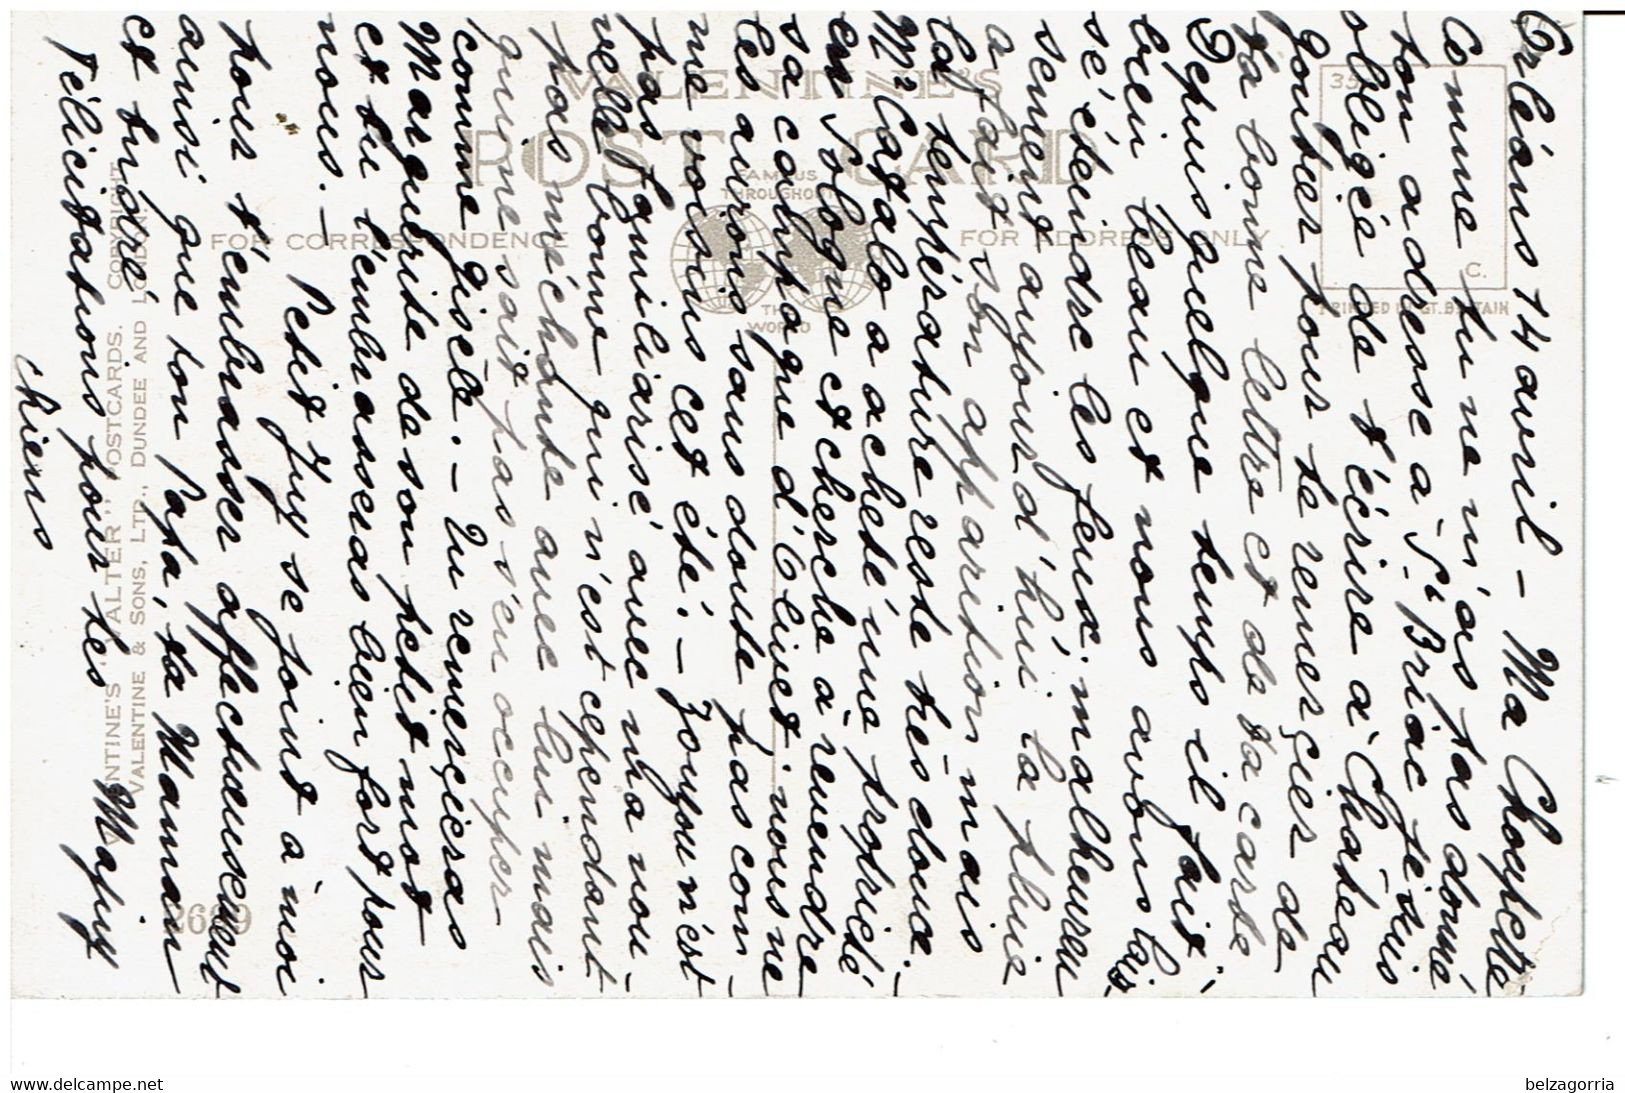 Orléans 14 avril - Ma Choupette
Comme tu ne m'as pas donné
ton adresse à St Briac je suis
obligée de t'écrire à Château
gontier pour te remercier de
ta bonne lettre et de ta carte
Depuis quelque temps il fait
bien beau et nous avons lais
sé éteindre les feux. malheureu
sement aujourd'hui la pluie
a fait son apparition mais
la température reste très douce.
Mr Catalo a acheté une propriété
en Sologne et cherche à revendre
sa campagne d'Olivet. nous ne
les aurons sans doute pas com-
me voisins cet été. - Joujou n'est
pas familiarisé avec ma nou-
velle bonne qui n'est cependant
pas méchante avec lui mais
qui ne sait pas s'en occuper
comme gisèle. - Tu remercieras
Marguerite de son petit mot
et tu l'embrasseras bien fort pour
nous. -
Petit Juy se joint à moi
pour t'embrasser affectueusement
ainsi que ton Papa, ta Maman
et André
Félicitations pour tes
Mapiy
VALENTINE'S
POST CARD
FAMOUS
THROUGHOUT
THE
WORLD
FOR CORRESPONDENCE
FOR ADDRESS ONLY
35
C.
PRINTED IN GT. BRITAIN
"VALENTINE'S "VALTER" POSTCARDS. COPYRIGHT
VALENTINE & SONS, LTD., DUNDEE AND LONDON.
www.delcampe.net
belzagorria